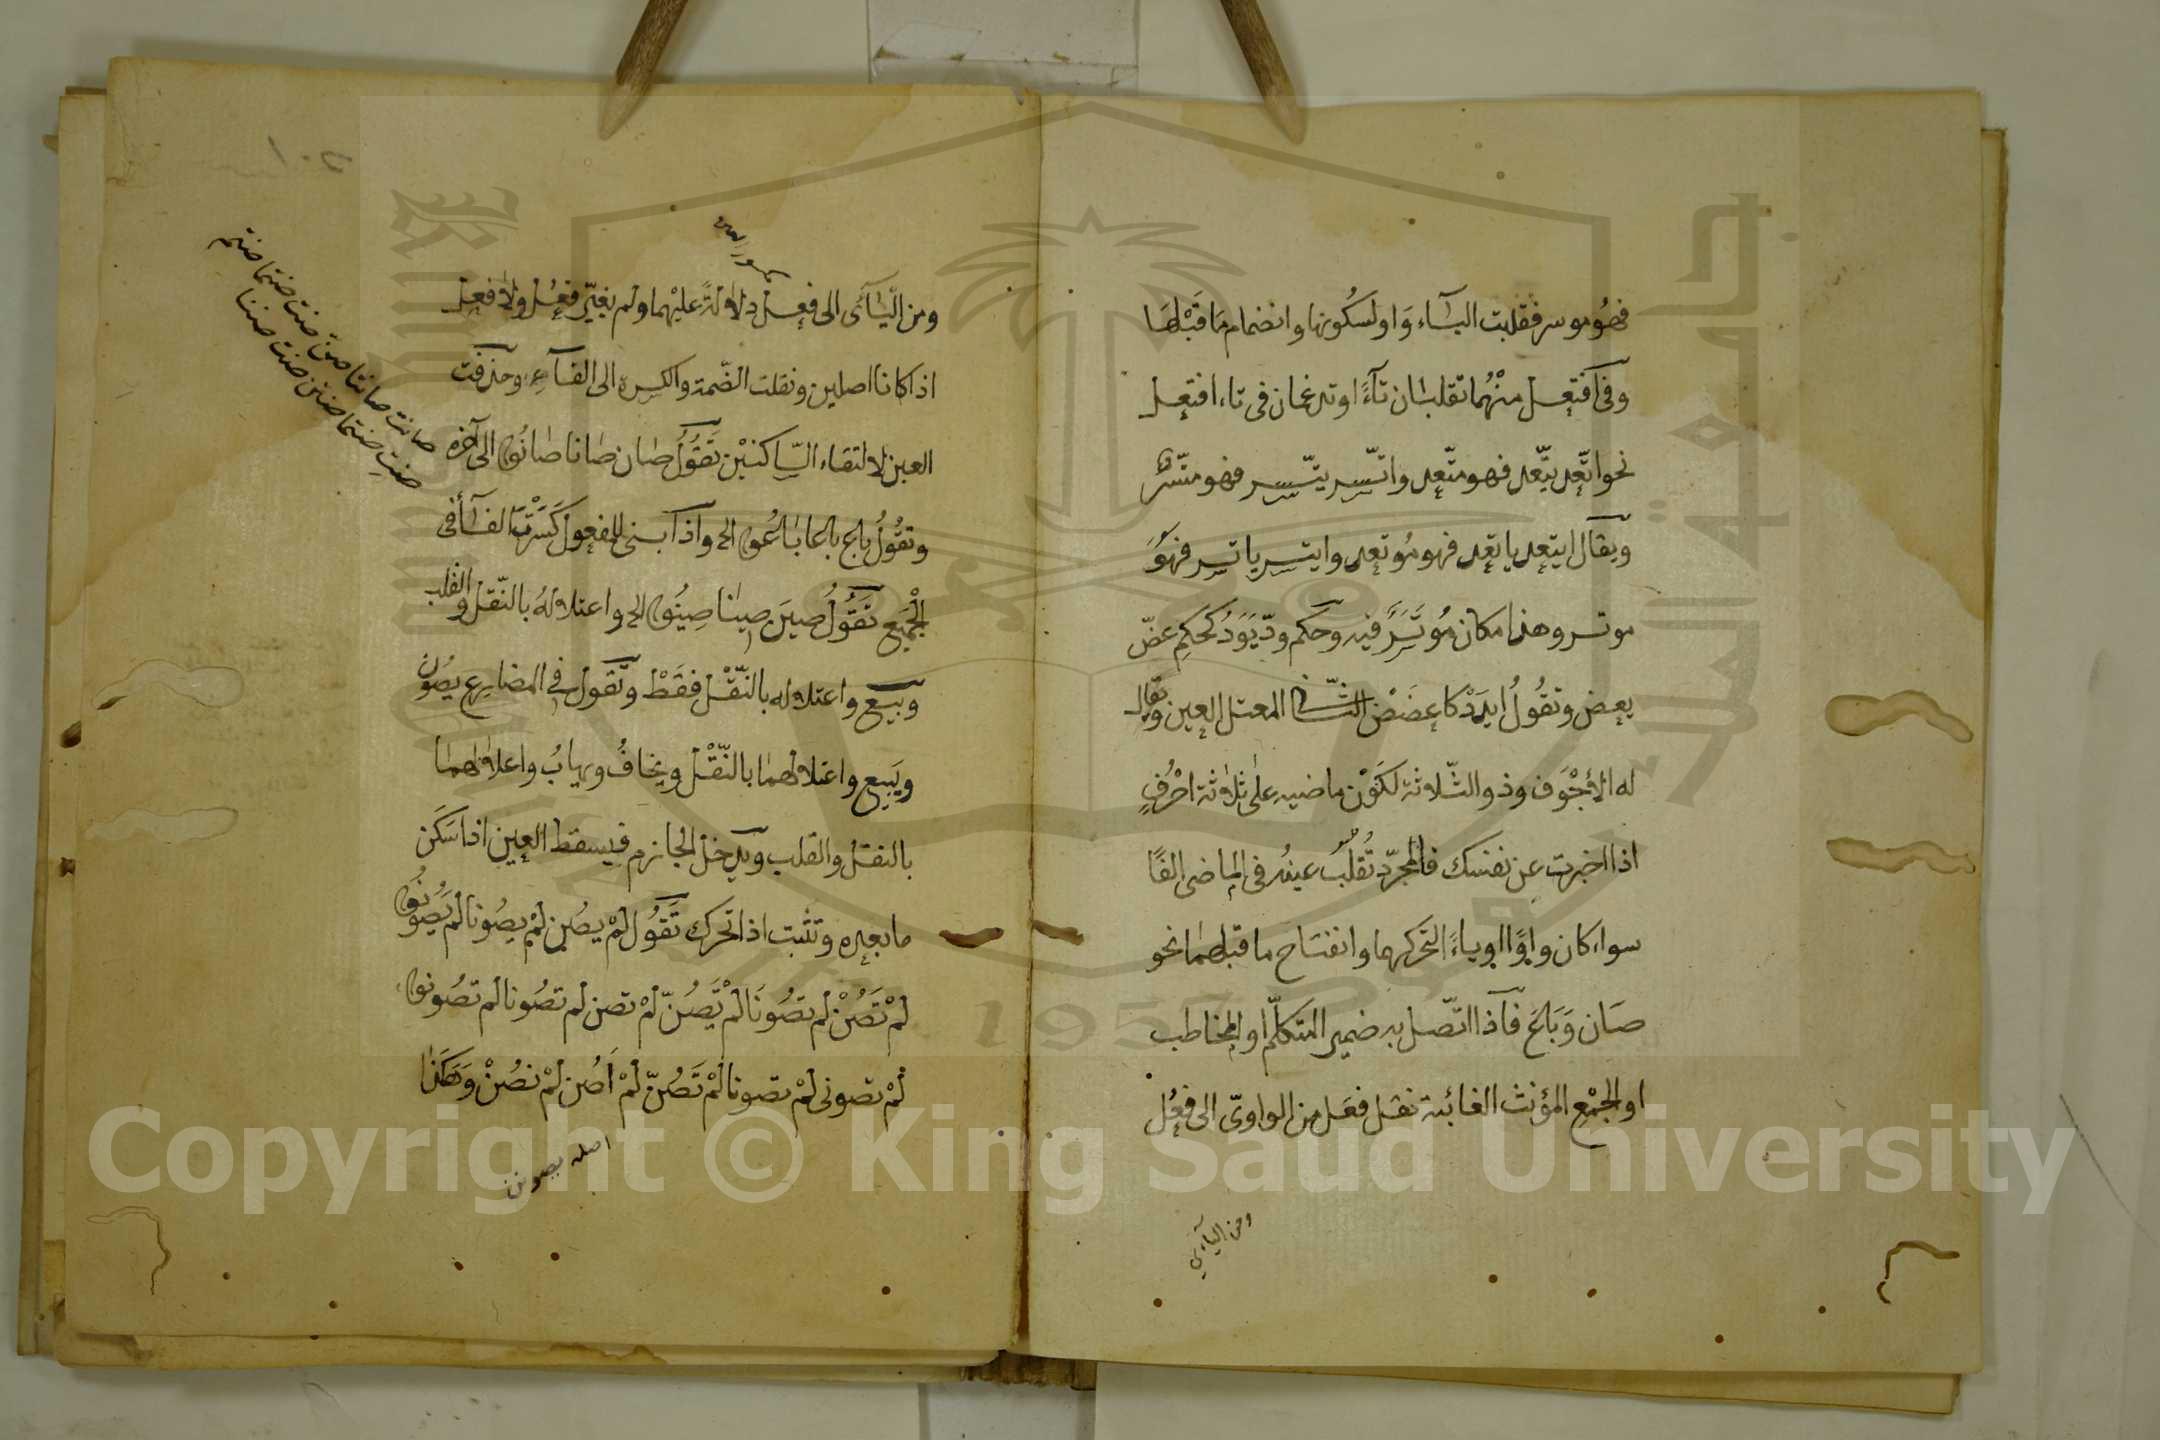 فهُو موسر فقلبت اليآء وَاوا لسكُونها وانضمام مَا قَبْلهَا
وفى افتعل منْهُما تقلبان تآءً وتدغمان فى تاء افتعل
نحو اتّعد يتّعد فهو متّعد واتّسر يتّسر فهو متّسر
ويقال ايتعد ياتعد فهو مُوتعد وايتسر ياتسر فهوَ
موتسر وهذا مكان مُوتَسَرٌ فيه وحكم ودّ يَوَدُّ كحكم عضّ
يعض وتقُولُ ايدَدْ كاعضَضْ الثّانى المعتل العين ويقال
له الأجْوَف وذو الثّلاثة لكَوْن ماضيه على ثلاثة احْرُفٍ
اذا اخبرت عن نفسك فالمجرّد تُقلَبُ عينُه فى الماضى الفًا
سواء كان واوًا او ياءً لتحركهما وانفتاح ما قبلهما نحو
صَان وَبَاعَ فآذا اتّصل به ضمير المتكلّم او المخاطب
او الجمْع المؤنث الغائبة نقل فعَل من الواوىّ الى فعُل
ومن اليآءى
مكسور العين
ومن اليآئى الى فعِل دلالةً عليْهما ولم يغيّر فعُل ولا فعِل
اذا كانا اصلين ونقلت الضّمة والكسرة الى الفآءِ وحذفت
العين لالتقاء السّاكنيْن تقُولُ صان صانا صانُوا الى آخره
وتقُولُ باع باعا باعُوا الخ واذا بنى للمفعول كَسَرْتَ الفآء فى
الْجَمِيع تَقُولُ صِينَ صِينا صِينُوا الخ واعتلالهُ بالنّقل والقلب
وبيع واعتلاله بالنّقْل فقَطْ وتقول فى المضارع يصُون
ويَبيع واعتلالهما بالنّقْل ويخافُ ويهابُ واعلالهما
بالنقل والقلب ويدخل الجازم فيسقط العين اذا سَكَن
ما بعده وتثبت اذا تحرك تَقُول لمْ يصُن لمْ يصُونا لمْ يصُونُوا
لمْ تَصُنْ لم تصُونَا لمْ يَصُنّ لمْ تصن لم تصُونا لم تصُونوا
لمْ تصونى لمْ تصونا لمْ تَصُنّ لمْ اَصُن لمْ نصُنْ وَهَكَذا
اصله يصون
صانت صانتا صن صنت صنتما صنتم
صنتِ صنتما صنتن صنت صننا
Copyright © King Saud University
1957